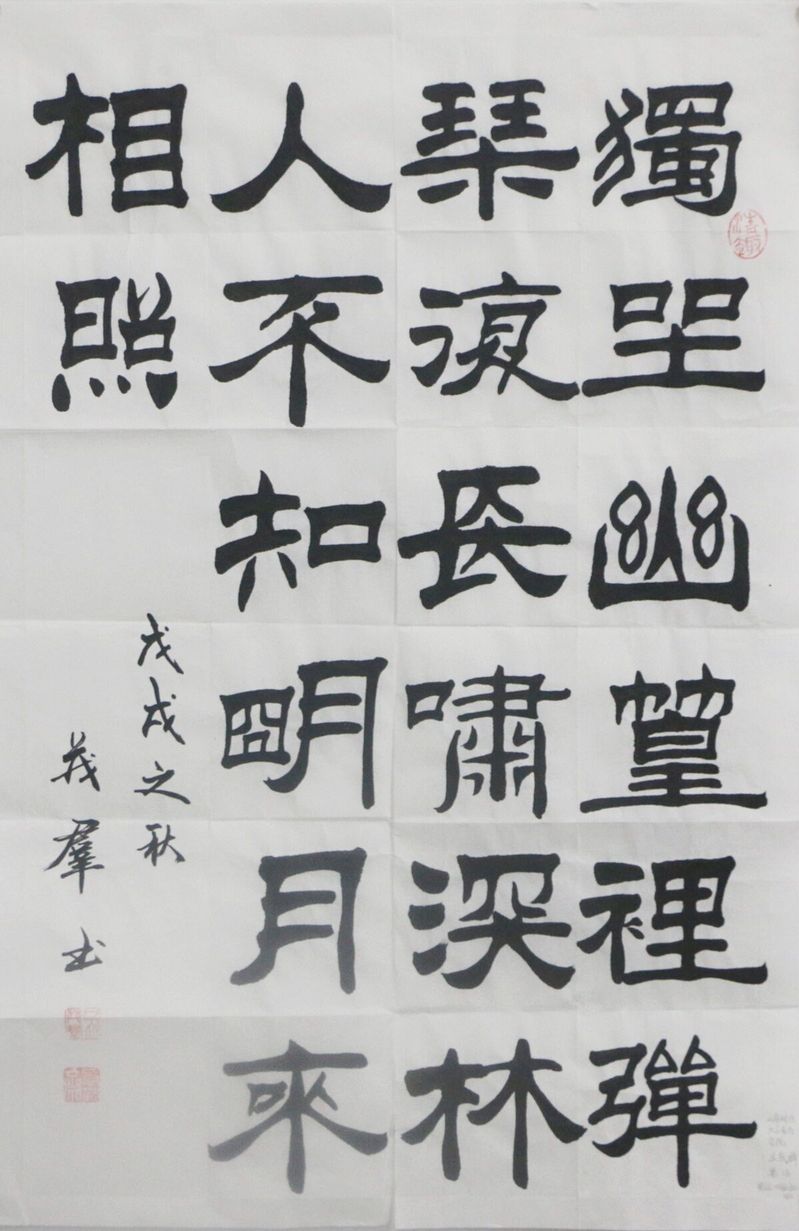 獨坐幽篁裡彈
琴復長嘯深林
人不知明月來
相照
戊戌之秋
義羣书